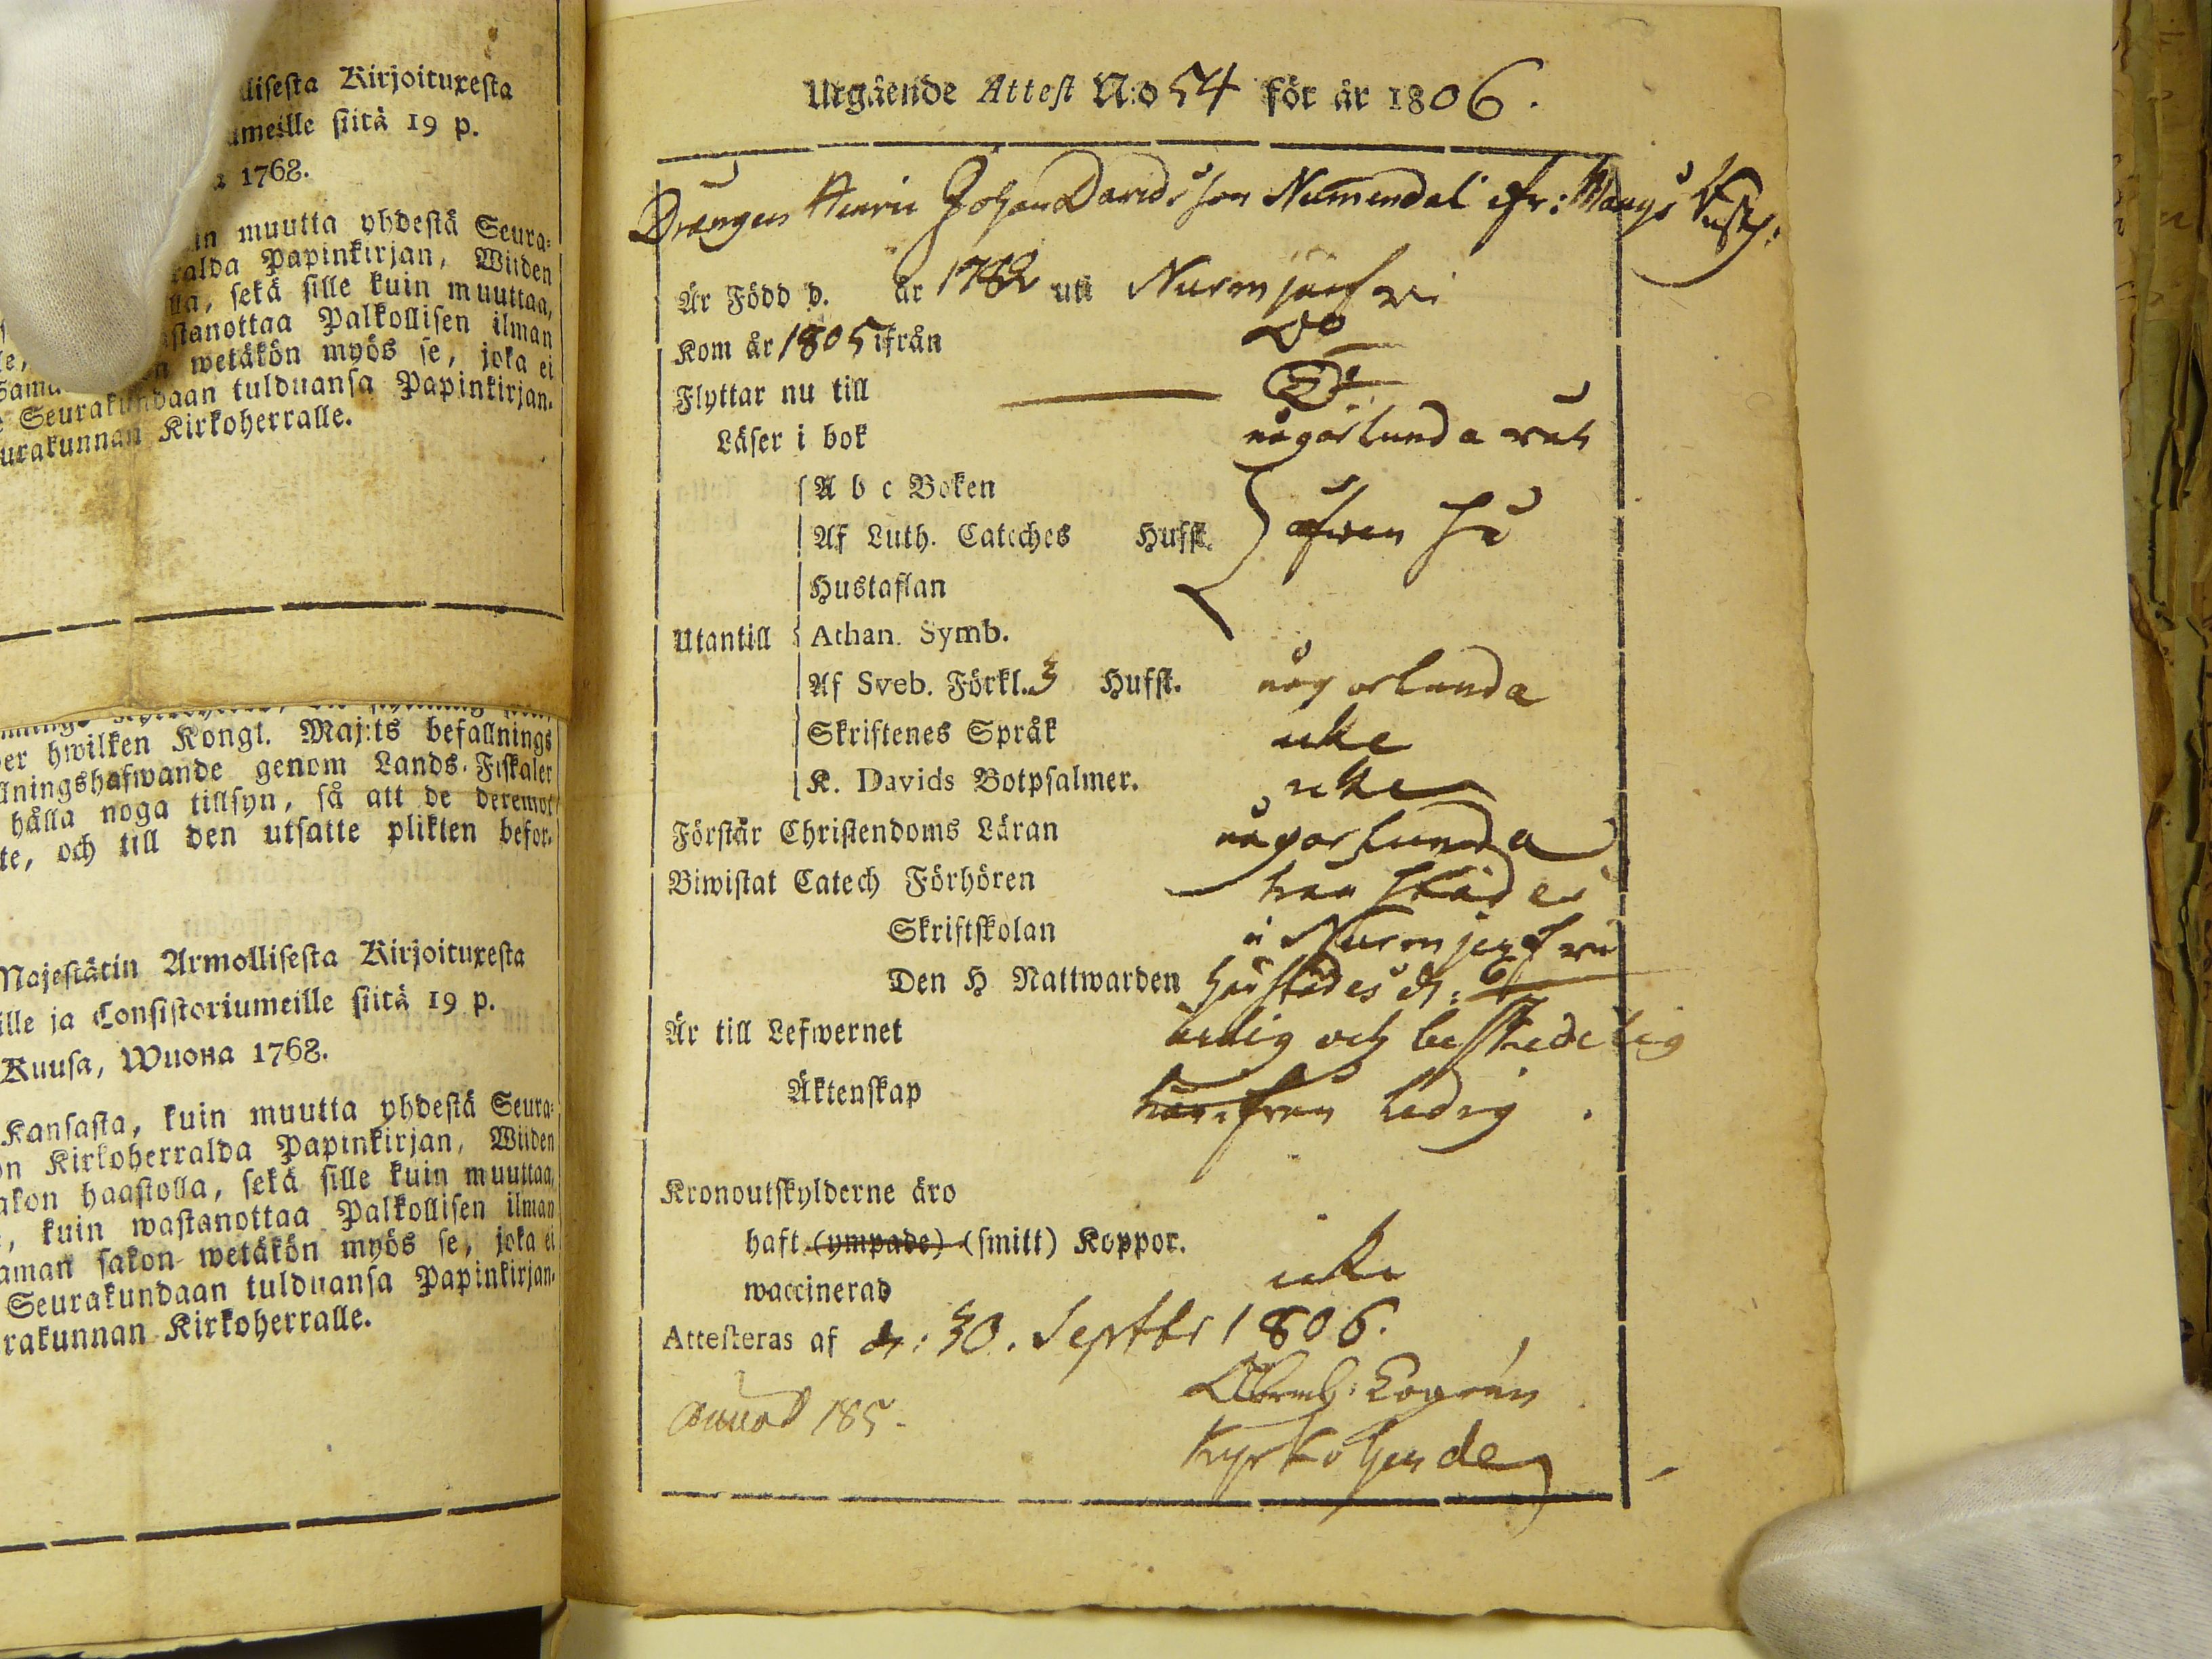 lisesta Kirjoituxesta
umeille siitä 19 p.
1768.
in muutta yhdestä Seura-
ralda Papinkirjan, Wiiden
lla, sekä sille kuin muuttaa,
astanottaa Palkollisen ilman
wetäkön myös se, joka ei
Seurakundaan tulduansa Papinkirjan-
urakunnan Kirkoherralle.
er hwilken Kongl. Maj:ts befallnings
lningshafwande genom Lands-Fiskaler
hålla noga tillsyn, så att de deremot
te, och till den utsatte plikten befor-
Majestätin Armollisesta Kirjoituxesta
ille ja Consistoriumeille siitä 19 p.
Kuusa, Wuona 1768.
Kansasta, kuin muutta yhdestä Seura-
on Kirkoherralda Papinkirjan, Wiiden
akon haastolla, sekä sille kuin muuttaa,
, kuin wastanottaa Palkollisen ilman
aman sakon wetäkön myös se, joka ei
Seurakundaan tulduansa Papinkirjan-
rakunnan Kirkoherralle.
Utgående Attest N:o 54 för år 1806.
Drengen Henric Johan Davidsson Numendal ifr:
Är Född d. år 1782 uti Nurmijerfvi
Kom år 1805 ifrån Do
Flyttar nu till Do
Läser i bok någorlunda
A b c Boken
Af Luth. Cateches Hufst.
Hustaflan
Utantill Athan. Symb.
Af Sveb. Förkl. 3 Hufst. någorlunda
Skriftenes Språk icke
K. Davids Botpsalmer. icke
Förstår Christendoms Läran någorlunda
Biwistat Catech Förhören
Skriftskolan i Nurmijerfvi
Den H Nattwarden
Är till Lefwernet ärlig och beskedelig
Äktenskap härifrån ledig.
Kronoutskylderne äro
haft (ympade) (smitt) Koppor.
waccinerad icke
Attesteras af d: 30. Septbr 1806.
185.
Kyrkoherde